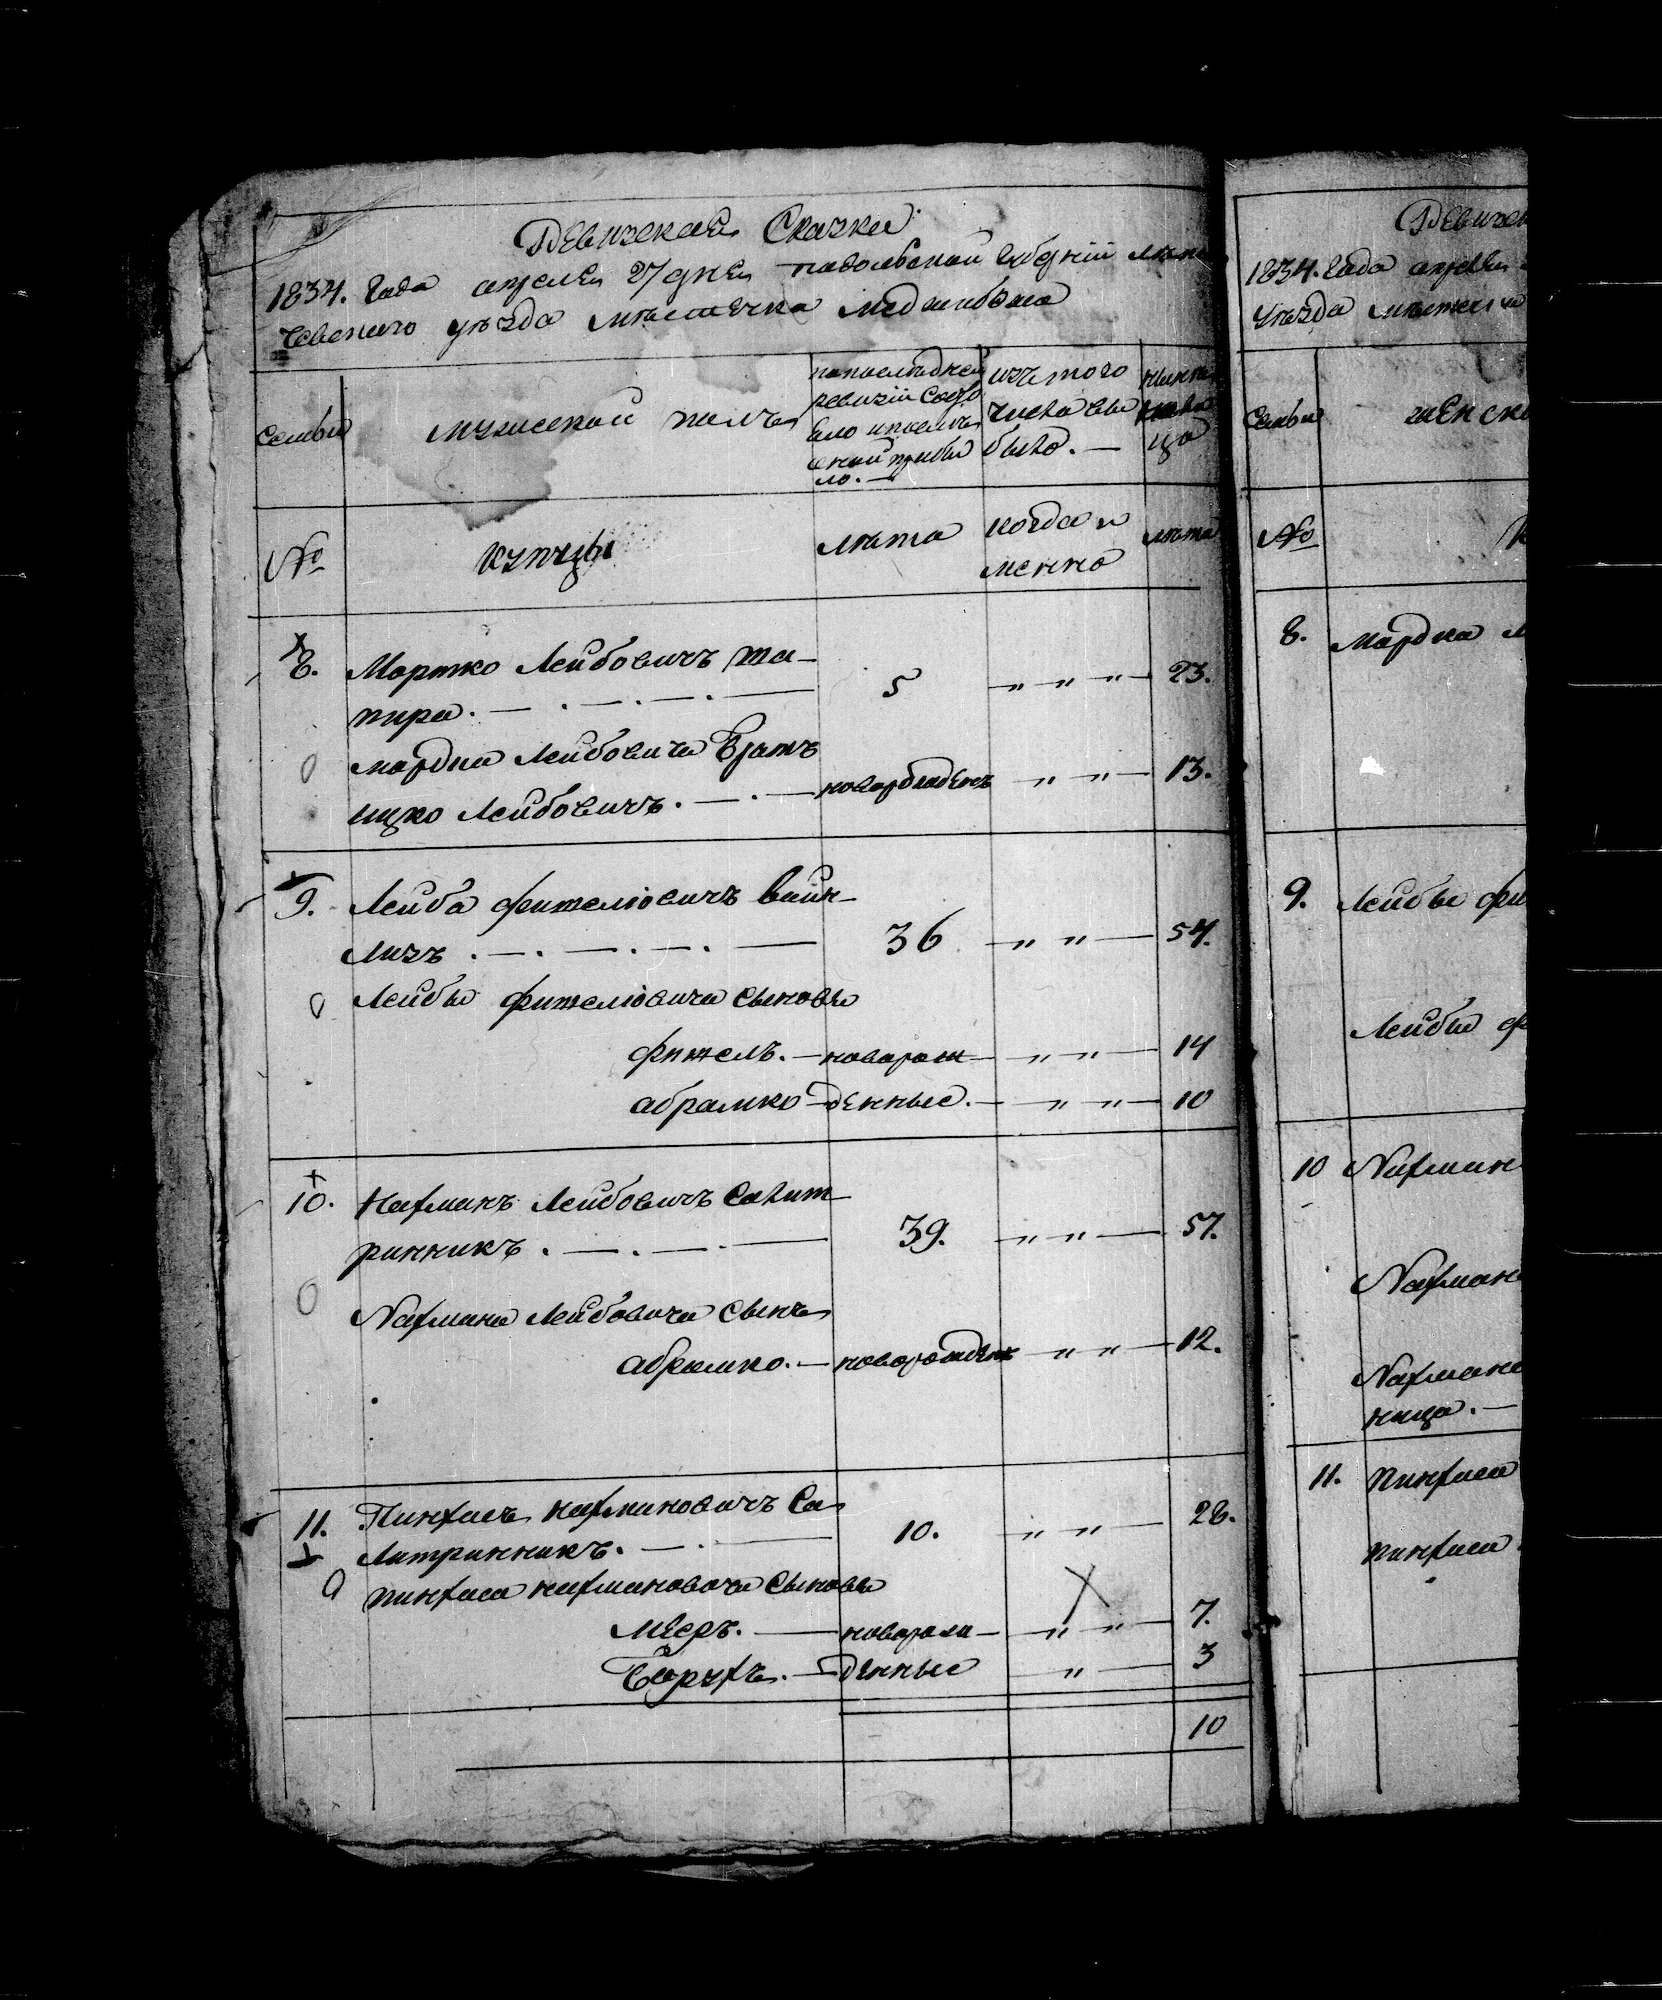 Ревизская Сказка
1834. Года апреля 27 дня подольской губерніи
чевского уѣзда мѣстечка меджибожа
семьи
мужеской полъ
по последней
ревизіи состо
яло и после
оной прибы
ло. —
изъ того
числа вы
было. —
ныне
на ли
цо
№
купцы
лѣта
когда и
менно
лѣта
8. Мортко Лейбовичъ Ша–
пира. — . — . — . — 5 — „ „ „ — 23.
мордка Лейбовича Братъ
ицко Лейбовичъ. — . — новорожденъ — „ „ — 13.
9. Лейба фишелiовичъ Вайн–
лизъ . — . — . — . — 36 — „ „ — 54.
Лейбы фишелiовича сыновья
фишель. — новорож — „ „ — 14
абрамко — денные. — „ „ — 10
10. Нахманъ Лейбовичъ Салит–
ринникъ . — . — . — 39. — „ „ — 57.
Нахмана Лейбовича сынъ
абрамко. — новорожден — „ „ — 12.
11. Пинхасъ нахмановичъ Са
Литринникъ. — . — 10. — „ „ — 28.
пинхаса нахмановича сыновья
мееръ. — новорож — „ „ — 7.
Борухъ. — денные „ — 3
10
Ревизск
1834. Года апреля
уѣзда мѣстеч
семьи
женск
№
8. Мордка
9. Лейбы фи
Лейбы ф
10 Нахман
Нахман
Нахмана
ница. —
11. пинхаса
пинхаса